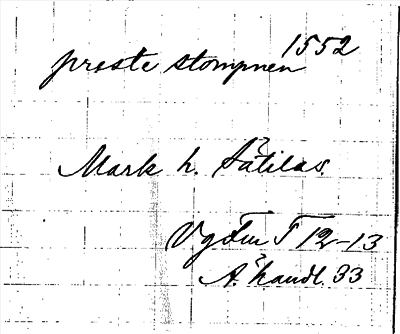 preste stompnen 1552
Mark h. Sätilas.
Vg du T 12-13
Ä. handl. 33